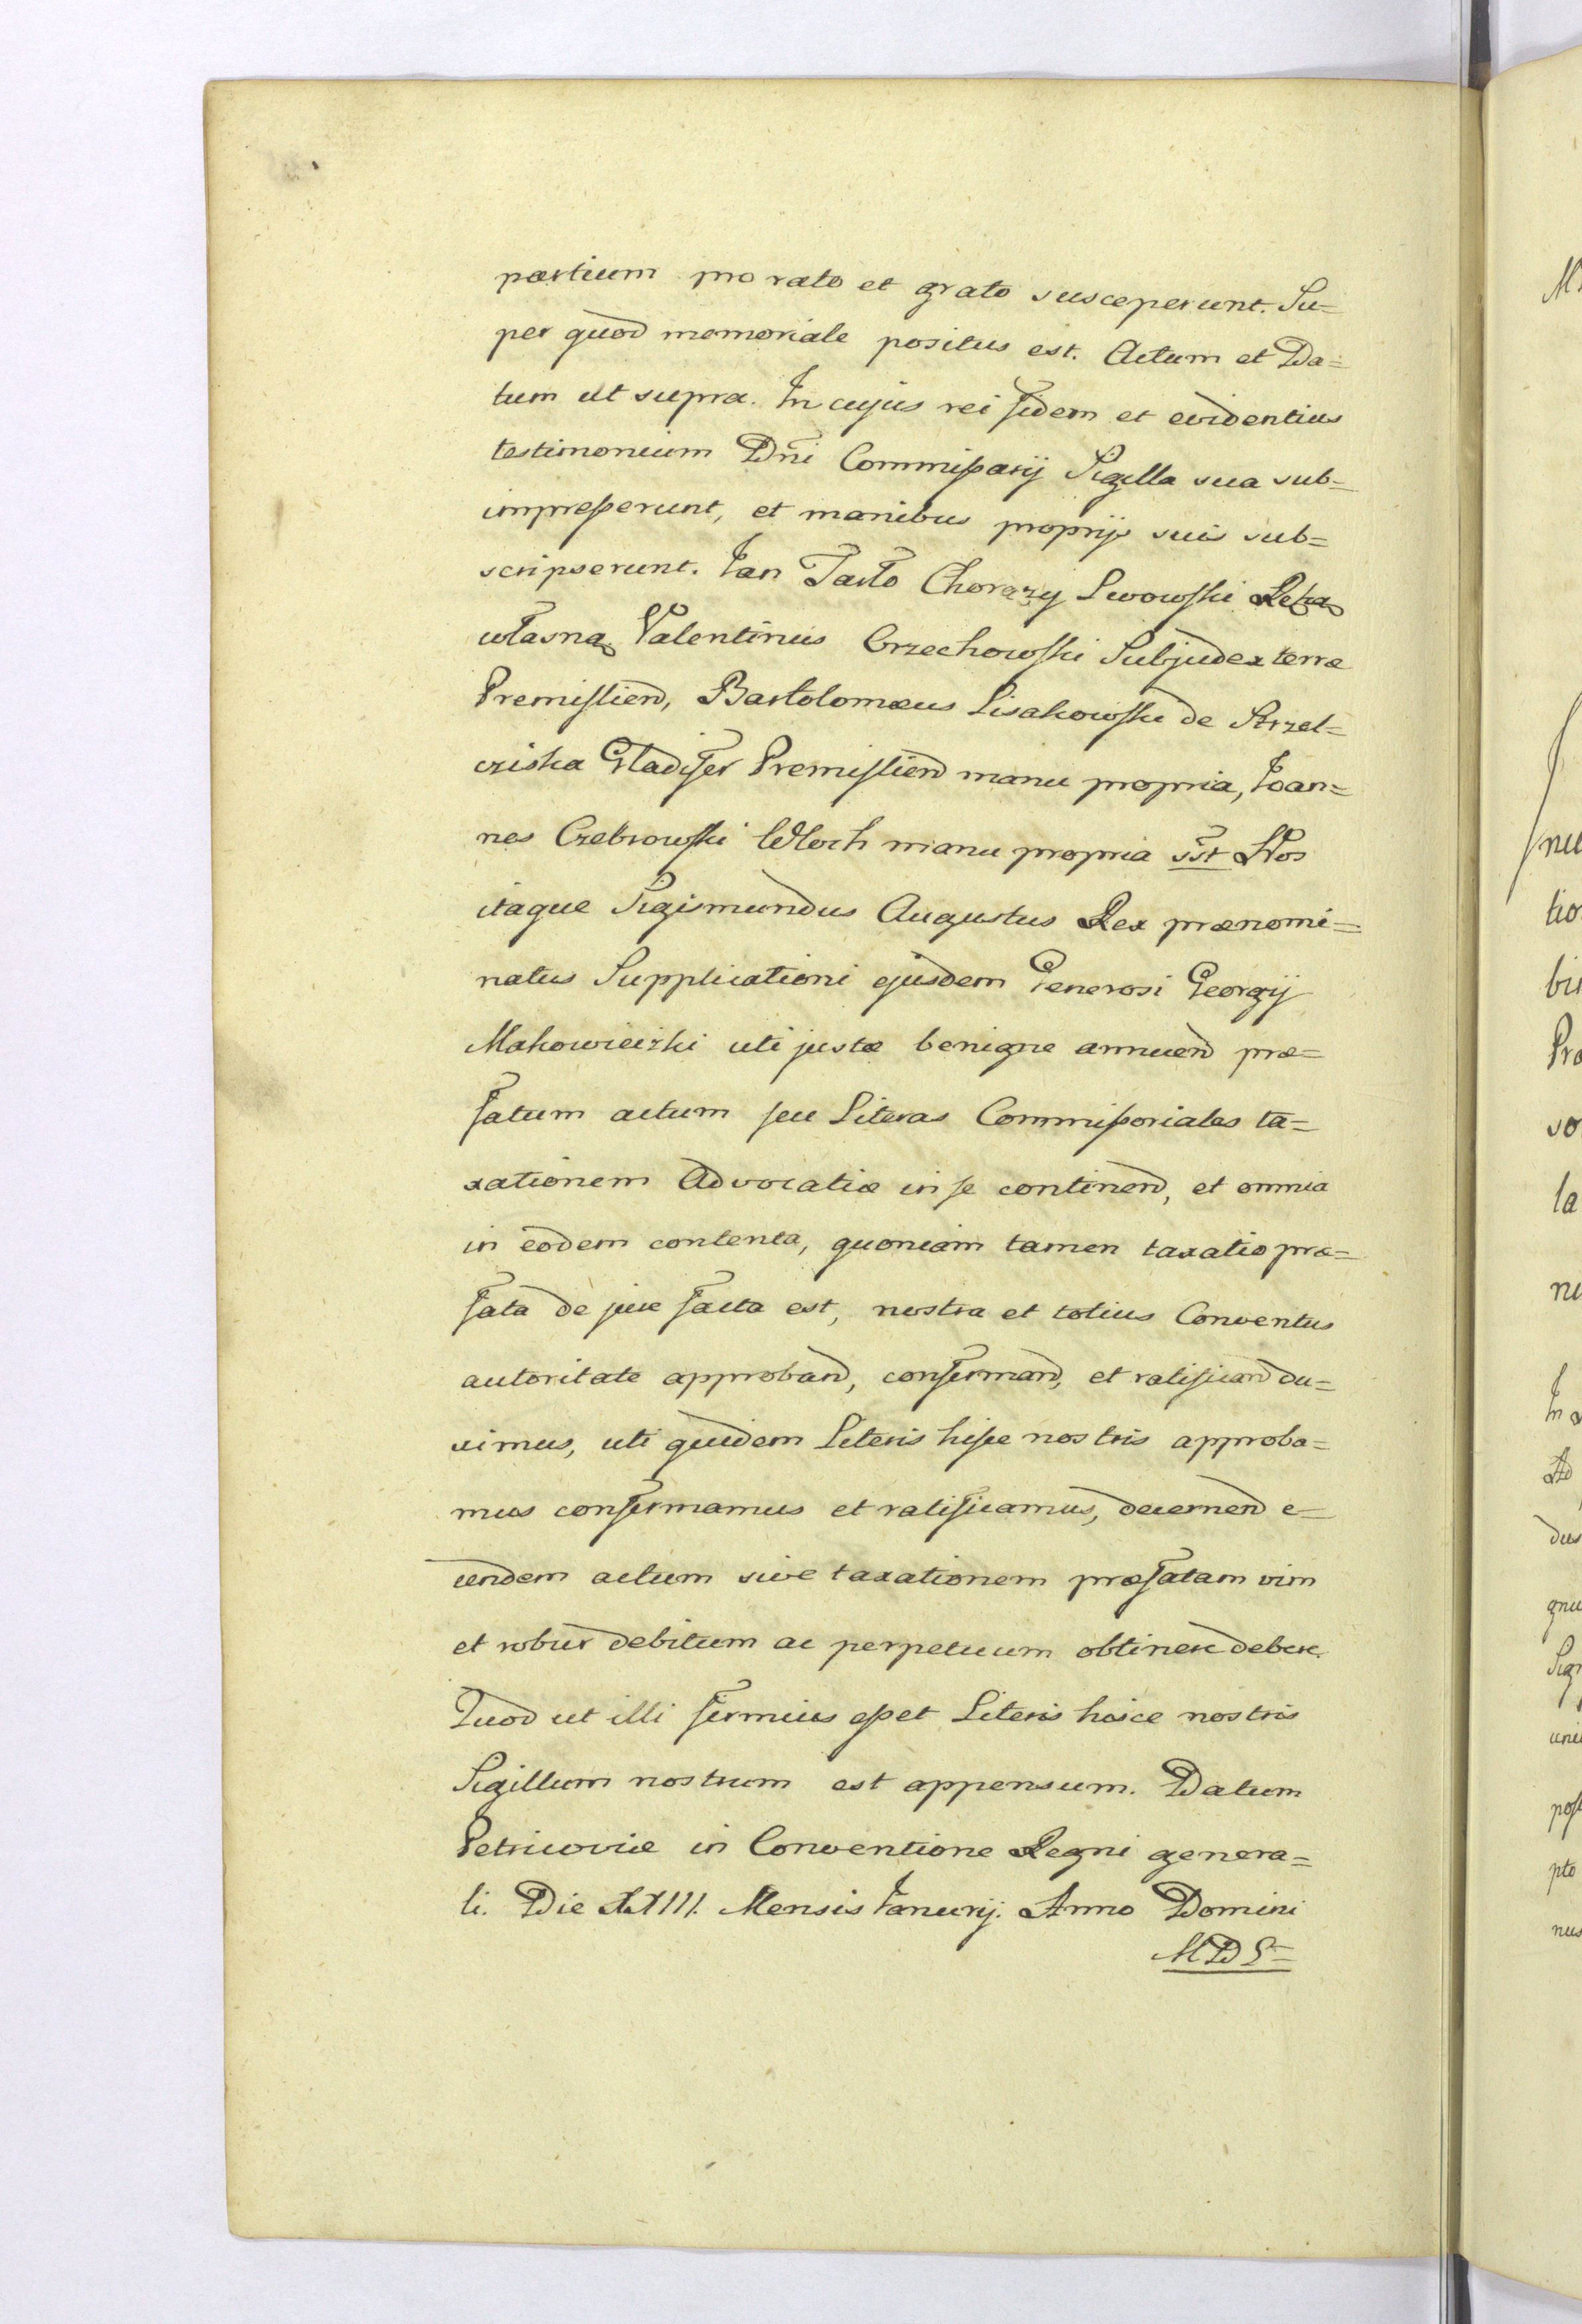 partium pro rato et grato susceperunt. Su=
per quod memoriale positus est. Actum et Da=
tum ut supra. In cujus rei fidem et evidentius
testimonium Dn̄i Commißarij Sigilla sua sub=
impreßerunt, et manibus proprijs suis sub=
scripserunt. Jan Tarło Chorązy Lwowski Ręką
własną Valentinus Orzechowski Subjudex terræ
Premislien̄d, Bartolomæus Lisakowski de Strzel=
cziska Gladifer Premislien̄d manu propria, Joan=
nes Czebrowski Wloch manu propria sst Nos
itaque Sigismundus Augustus Rex prænomi=
natus Supplicationi ejusdem Generosi Georgij
Makowieczki uti justæ benigne annuend præ=
fatum actum seu Literas Commißoriales ta=
xationem Advocatiæ in se continend, et omnia
in eodem contenta, quoniam tamen taxatio præ=
fata de jure facta est, nostra et totius Conventus
autoritate approband, confirmand, et ratificand du=
ximus, uti quidem Literis hisce nostris approba=
mus confirmamus et ratificamus, decernend e=
undem actum sive taxationem præfatam vim
et robur debitum ac perpetuum obtinere debere.
Quod ut illi firmius eßet Literis hisce nostris
Sigillum nostrum est appensum. Datum
Petricoviæ in Conventione Regni genera=
li. Die XXIII. Mensis Januarij. Anno Domini